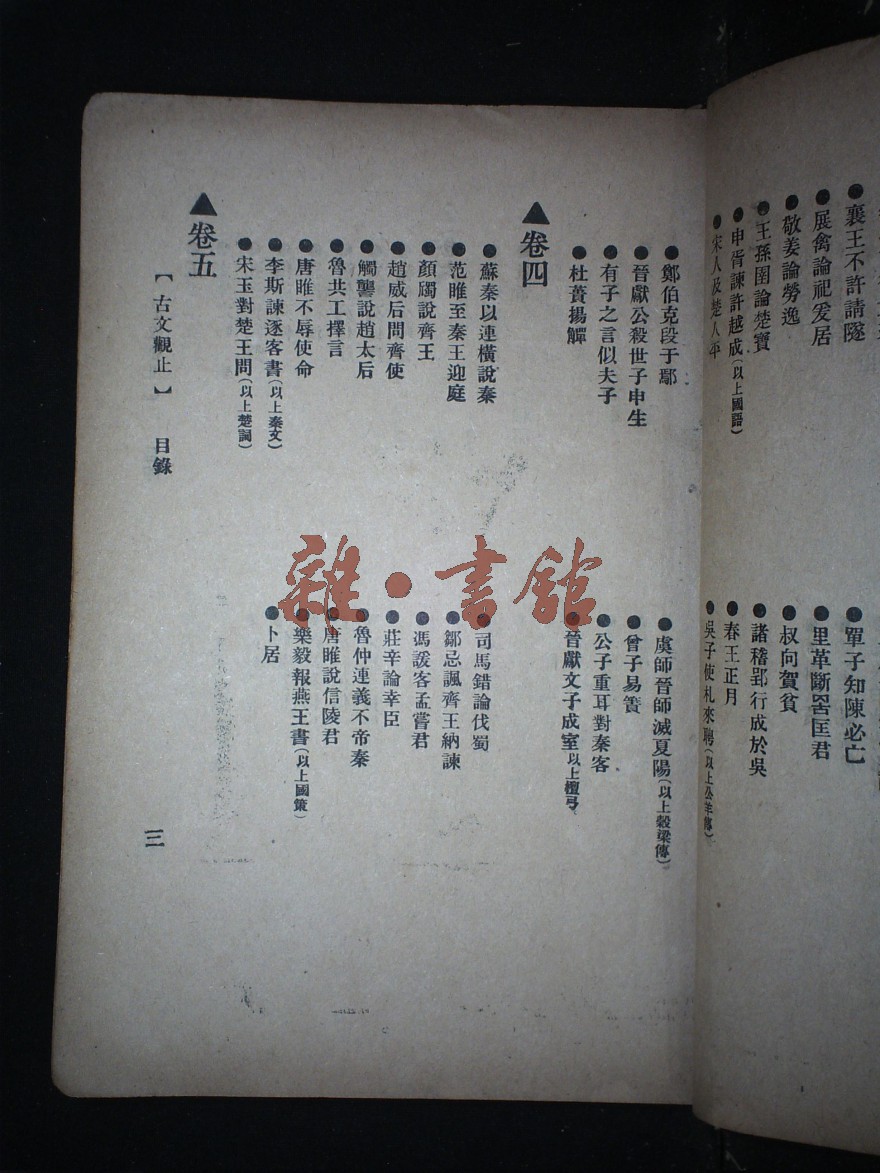 ●襄王不許請隧
●單子知陳必亡
●展禽論祀爰居
●里革斷罟匡君
●敬姜論勞逸
●叔向賀貧
●王孫圉論楚寶
●諸稽郢行成於吳
●申胥諫許越成(以上國語)
●春王正月
●宋人及楚人平
●吳子使札來聘(以上公羊傳)
●鄭伯克段于鄢
●虞師晉師滅夏陽(以上穀梁傳)
●晉獻公殺世子申生
●曾子易簀
●有子之言似夫子
●公子重耳對秦客
●杜蕢揚觶
●晉獻文子成室以上檀弓
▲卷四
●蘇秦以連橫說秦
●司馬錯論伐蜀
●范睢至秦王迎庭
●鄒忌諷齊王納諫
●顏斶說齊王
●馮諼客孟嘗君
●趙威后問齊使
●莊辛論幸臣
●觸讋說趙太后
●魯仲連義不帝秦
●魯共工擇言
●唐睢說信陵君
●唐睢不辱使命
●樂毅報燕王書(以上國策)
●李斯諫逐客書(以上秦文)
●卜居
●宋玉對楚王問(以上楚詞)
▲卷五
【古文觀止】 目錄
三
雜·書館